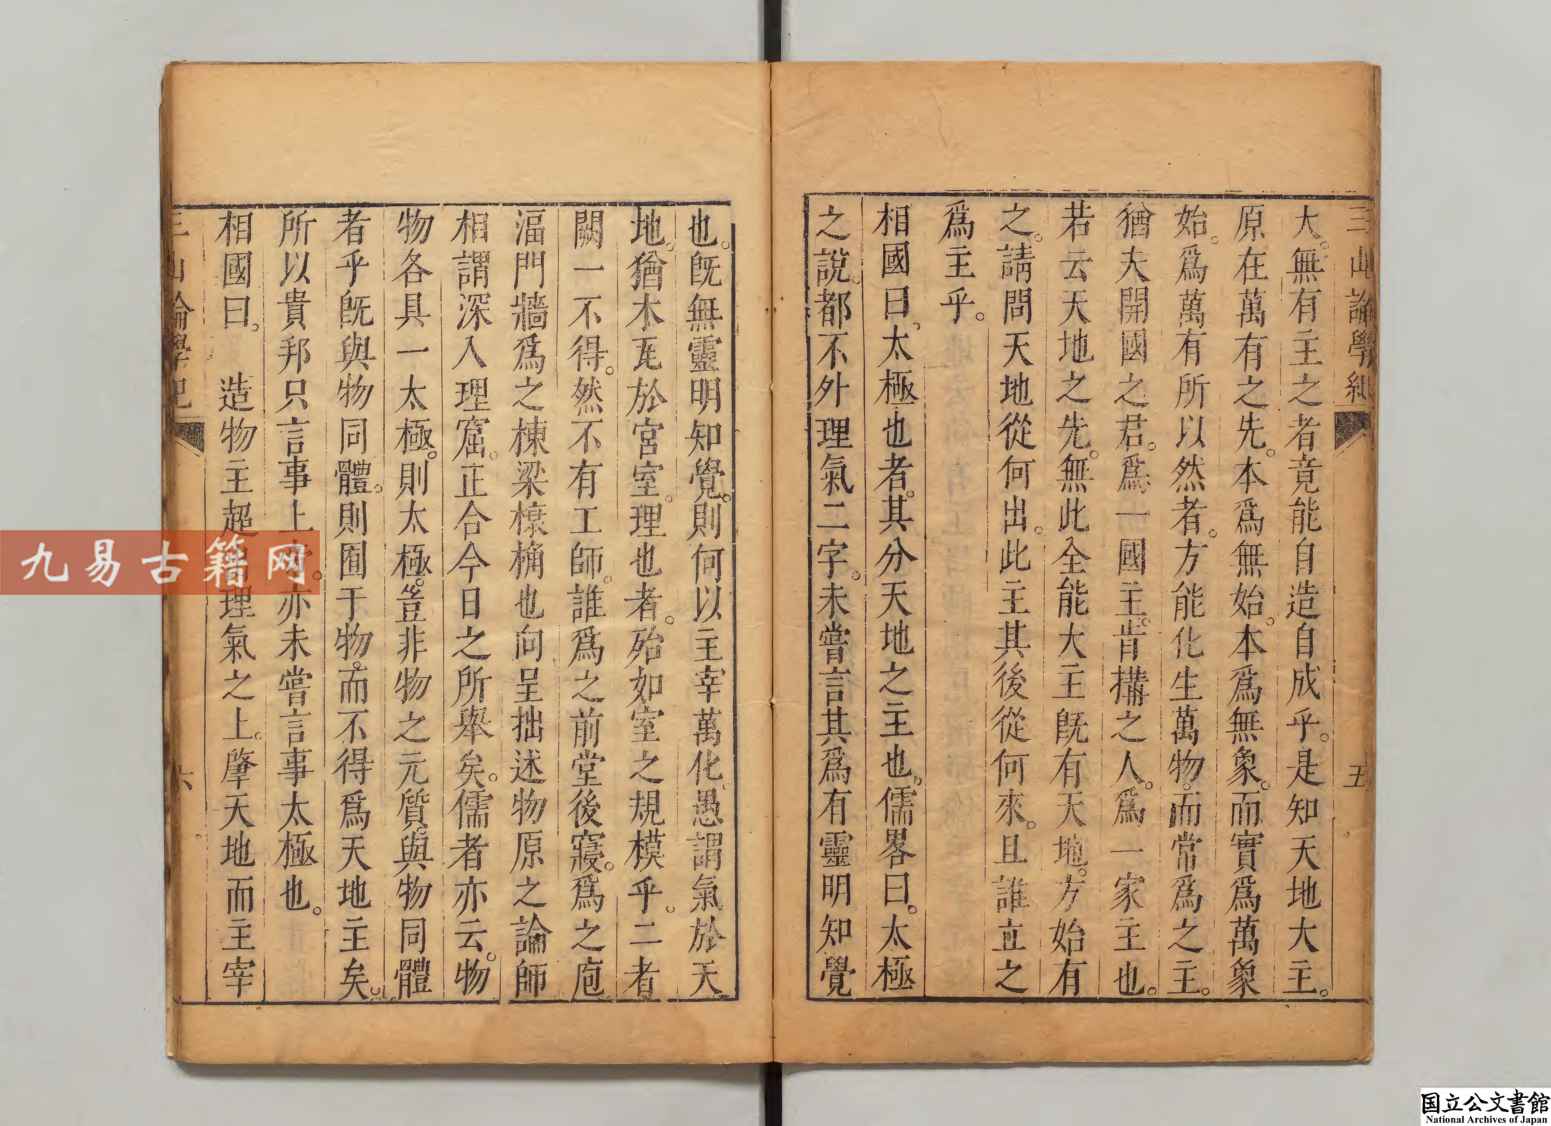 三山論學紀
五
大。無有主之者竟能自造自成乎。是知天地大主。
原在萬有之先。本爲無始。本爲無象。而實爲萬象
始。爲萬有所以然者。方能化生萬物。而常爲之主。
猶夫開國之君。爲一國主。肯構之人。爲一家主也。
若云天地之先。無此全能大主旣有天地。方始有
之。請問天地從何出。此主其後從何來。且誰立之
爲主乎。
相國曰。太極也者。其分天地之主也。儒畧曰。太極
之說。都不外理氣二字。未嘗言其爲有靈明知覺
也。旣無靈明知覺。則何以主宰萬化。愚謂氣於天
地。猶木瓦於宮室。理也者。殆如室之規模乎。二者
闕一不得。然不有工師。誰爲之前堂後寢。爲之庖
湢門牆爲之棟梁榱桷也向呈拙述物原之論師
相謂深入理窟。正合今日之所舉矣。儒者亦云。物
物各具一太極。則太極。豈非物之元質。與物同體
者乎旣與物同體。則囿于物。而不得爲天地主矣。
所以貴邦只言事上帝。亦未嘗言事太極也。
相國曰。造物主超理氣之上。肇天地而主宰
三山論學紀
六
九易古籍网
国立公文書館
National Archives of Japan